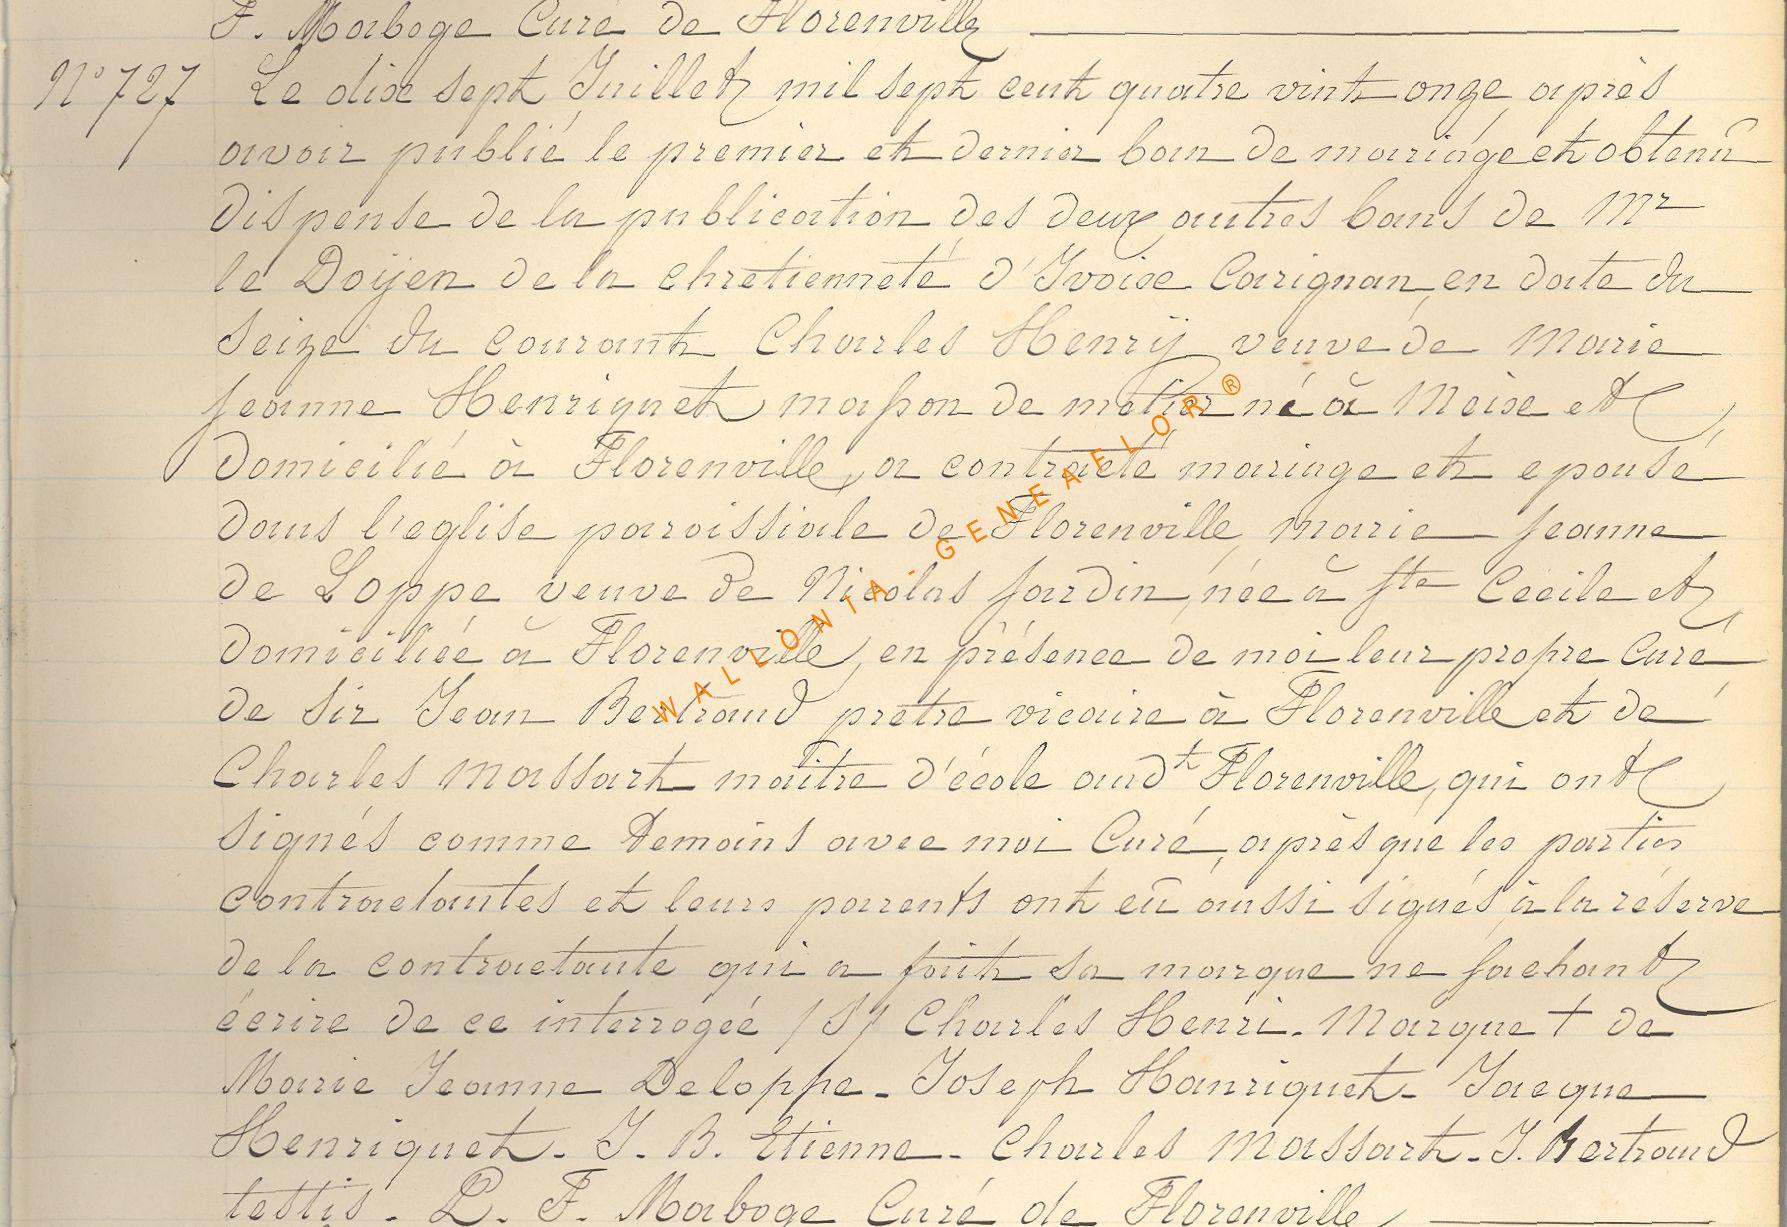 F. Maboge Curé de Florenville
N° 727 Le dix sept Juillet mil sept cent quatre vint onze après
avoir publié le premier et dernier ban de mariage et obtenû
dispense de la publication des deux autres bans de Mr
le Doÿen de la chretienneté d'Ivoix Carignan, en date du
seize du courant Charles Henrÿ veuve de Marie
Jeanne Henriquet, masson de métier né à Meix et
domicilié à Florenville, a contracté mariage et epousé
dans l'eglise paroissiale de Florenville, Marie Jeanne
de Loppe veuve de Nicolas Jardin, née à Ste Cecile et
domiciliée à Florenville, en présence de moi leur propre Curé
de Sir Jean Bertrand pretre vicaire à Florenville et de
Charles Massart maître d'école audt Florenville, qui ont
signés comme temoins avec moi Curé, après que les parties
contractantes et leurs parents ont eû aussi signés à la réserve
de la contractante qui a fait sa marque ne sachant
écrire de ce interrogée /S/ Charles Henri. Marque + de
Marie Jeanne Deloppe. Joseph Hanriquet. Jacque
Henriquet. J. B. Etienne. Charles Massart. J. Bertrand
testis. P. F. Maboge Curé de Florenville,
WALLONIA - GENEAFLOR®